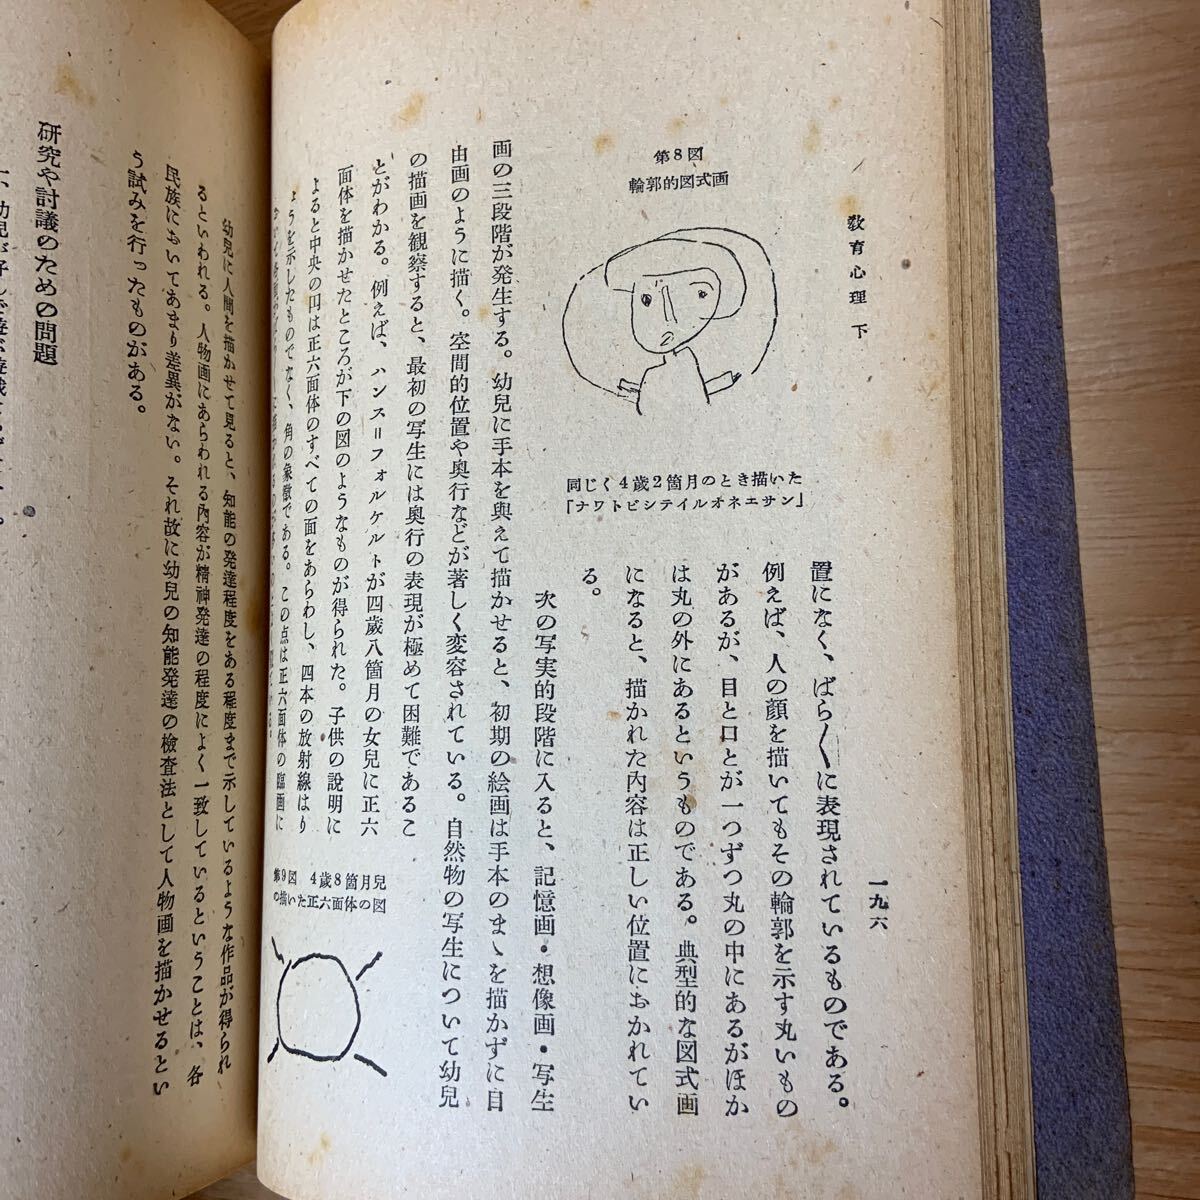 教育心理 下
一九六
置になく、ばら〱に表現されているものである。
例えば、人の顔を描いてもその輪郭を示す丸いもの
があるが、目と口とが一つずつ丸の中にあるがほか
は丸の外にあるというものである。典型的な図式画
になると、描かれた内容は正しい位置におかれてい
る。
第8図
輪郭的図式画
同じく4歳2箇月のとき描いた
「ナワトビシテイルオネエサン」
次の写実的段階に入ると、記憶画・想像画・写生
画の三段階が発生する。幼兒に手本を與えて描かせると、初期の絵画は手本のまゝを描かずに自
由画のように描く。空間的位置や奧行などが著しく変容されている。自然物の写生について幼兒
の描画を観察すると、最初の写生には奧行の表現が極めて困難であるこ
とがわかる。例えば、ハンス=フォルケルトが四歳八箇月の女兒に正六
面体を描かせたところが下の図のようなものが得られた。子供の説明に
よると中央の円は正六面体のすべての面をあらわし、四本の放射線はり
ようを示したものでなく、角の象徴である。この点は正六面体の臨画に
第9図 4歳8箇月兒
の描いた正六面体の図
幼兒に人間を描かせて見ると、知能の発達程度をある程度まで示しているような作品が得られ
るといわれる。人物画にあらわれる內容が精神発達の程度によく一致しているということは、各
民族においてあまり差異がない。それ故に幼兒の知能発達の検査法として人物画を描かせるとい
う試みを行ったものがある。
研究や討議のための問題